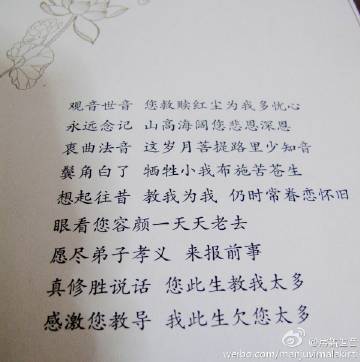 观音世音 您救赎红尘为我多忧心
永远念记 山高海阔您悲恩深恩
衷曲法音 这岁月菩提路里少知音
鬓角白了 牺牲小我布施苦苍生
想起往昔 教我为我 仍时常眷恋怀旧
眼看您容颜一天天老去
愿尽弟子孝义 来报前事
真修胜说话 您此生教我太多
感激您教导 我此生欠您太多
weibo.com/manjuvimalakirti